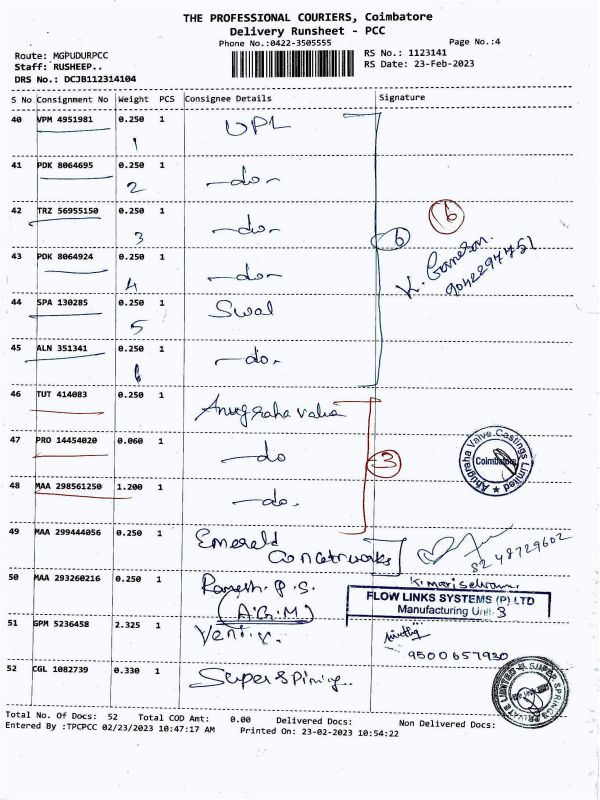 THE PROFESSIONAL COURIERS, Coimbatore
Delivery Runsheet - PCC
Phone No.:0422-3505555
Page No.:4
Route: MGPUDURPCC
RS No.: 1123141
Staff: RUSHEEP..
RS Date: 23-Feb-2023
DRS No.: DCJB112314104
S No Consignment No Weight PCS Consignee Details Signature
40 VPM 4951981 0.250 1 UPL
1
41 PDK 8064695 0.250 1 -do-
2
42 TRZ 56955150 0.250 1 -do-
3
6
6
43 PDK 8064924 0.250 1 -do-
4
K. Ganesan.
9042294451
44 SPA 130285 0.250 1 Swal
5
45 ALN 351341 0.250 1 -do-
6
46 TUT 414083 0.250 1 Anugraha valva
47 PRO 14454020 0.060 1 -do
3
Anugraha Valve Castings Limited
Coimbatore
48 MAA 298561250 1.200 1 -do.
49 MAA 299444056 0.250 1 Emerald
8248729602
50 MAA 293260216 0.250 1 Ramesh. P. S.
(A.G.M)
K. mariselvam
FLOW LINKS SYSTEMS (P) LTD
Manufacturing Unit. 3
51 GPM 5236458 2.325 1
9500657930
52 CGL 1082739 0.330 1 Super spining..
Total No. Of Docs: 52 Total COD Amt: 0.00 Delivered Docs: Non Delivered Docs:
Entered By :TPCPCC 02/23/2023 10:47:17 AM Printed On: 23-02-2023 10:54:22